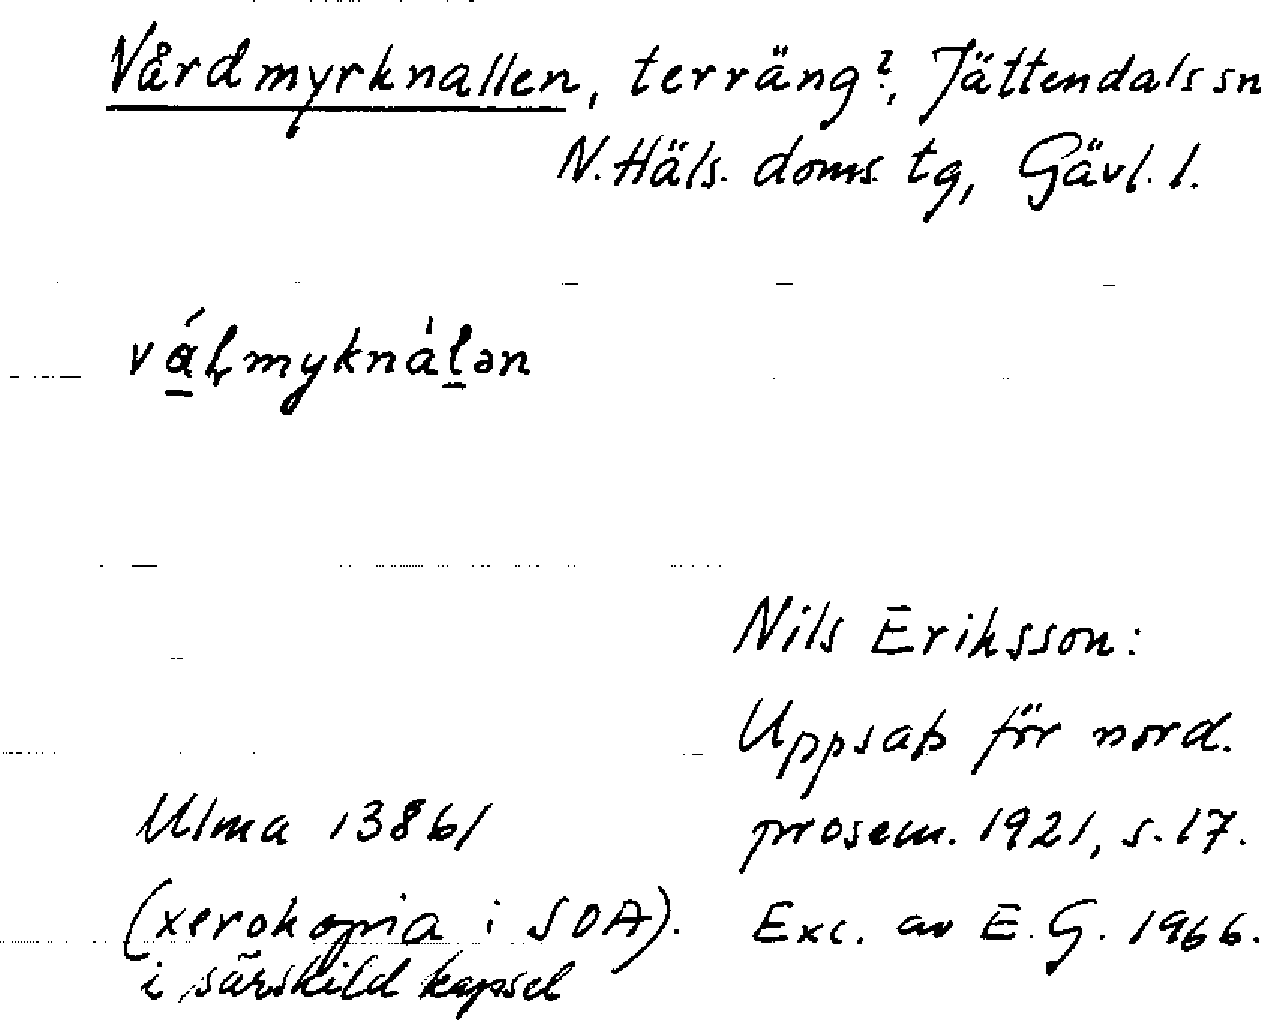 Vårdmyrknallen, terräng?, Jättendals sn
N. Häls. doms. tg, Gävl. l.
Nils Eriksson:
Uppsats för nord.
Ulma 13861
prosem. 1921, s. 17.
(xerokopia i SOA).
Exc. av E. G. 1966.
i särskild kapsel